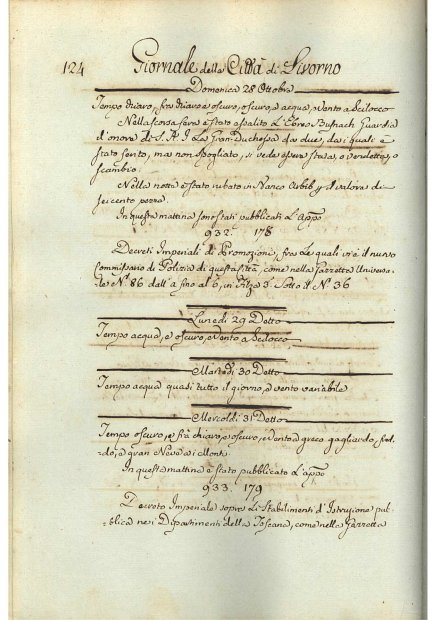 124 Giornale della Città di Livorno
Domenica 28 Ottobre
Tempo chiaro, fra chiaro e oscuro, oscuro, e acqua, vento a Scilocco
Nella scorsa sera è stato assalito l'Ebreo Busnach Guardia
d'onore di S. A. I. La Gran-Duchessa da due, da i quali è
stato ferito, ma non spogliato, si vede essere stata, o vendetta, o
scambio.
Nella notte è stato rubato in Narco Arbib il valore di
seicento pezze.
In questa mattina sono stati pubblicati l'app.
932. 178
Decreti Imperiali di Promozioni, fra le quali vi è il nuovo
Commissario di Polizia di questa Città, come nella Gazzetta Universa-
le N.º 86 dall' a fino al 6, in Filza 3. Sotto il N.º 36
Lunedì 29 Detto
Tempo acqua, e oscuro, vento a Scilocco
Martedì 30 Detto
Tempo acqua quasi tutto il giorno, e vento variabile
Mercoldì 31 Detto
Tempo oscuro, e fra chiaro, e oscuro, e vento a greco gagliardo, fred-
do, e gran Neve a i Monti.
In questa mattina è stato pubblicato l'app.
933. 179
Decreto Imperiale sopra li Stabilimenti d'Istruzione pub-
blica nei Dipartimenti della Toscana, come nella Gazzetta